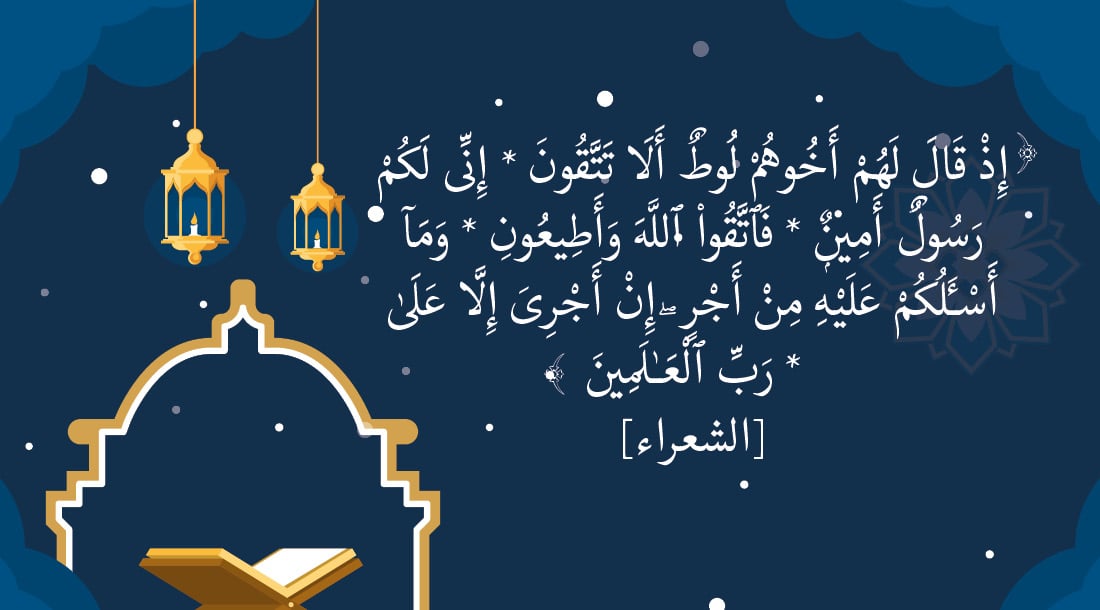 ﴿إِذْ قَالَ لَهُمْ أَخُوهُمْ لُوطٌ أَلَا تَتَّقُونَ * إِنِّى لَكُمْ
رَسُولٌ أَمِينٌ * فَٱتَّقُوا۟ ٱللَّهَ وَأَطِيعُونِ * وَمَآ
أَسْـَٔلُكُمْ عَلَيْهِ مِنْ أَجْرٍ ۖ إِنْ أَجْرِىَ إِلَّا عَلَىٰ
* رَبِّ ٱلْعَـٰلَمِينَ ﴾
[الشعراء]